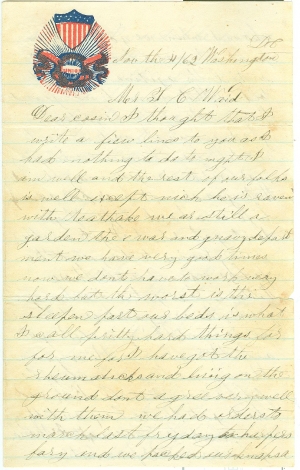 Jan the 4/62 Washington
Mr H C Ward
Dear cosin I thought that I
write a fiew lines to you as I
had nothing to do to nyght I
am well and the rest of our folks
is well except nick he is
with toothake we are still a
garden the war and navy depart
ment we have very good times
now we dont have to work very
hard but the worst is the
sleepen fort our beds is what
I call pritty hard things for
for me for I have got the
rheumaticks and liing on the
ground dont agree very well
with them we had orders to
march last fryday to harpers
and we packed our napsa